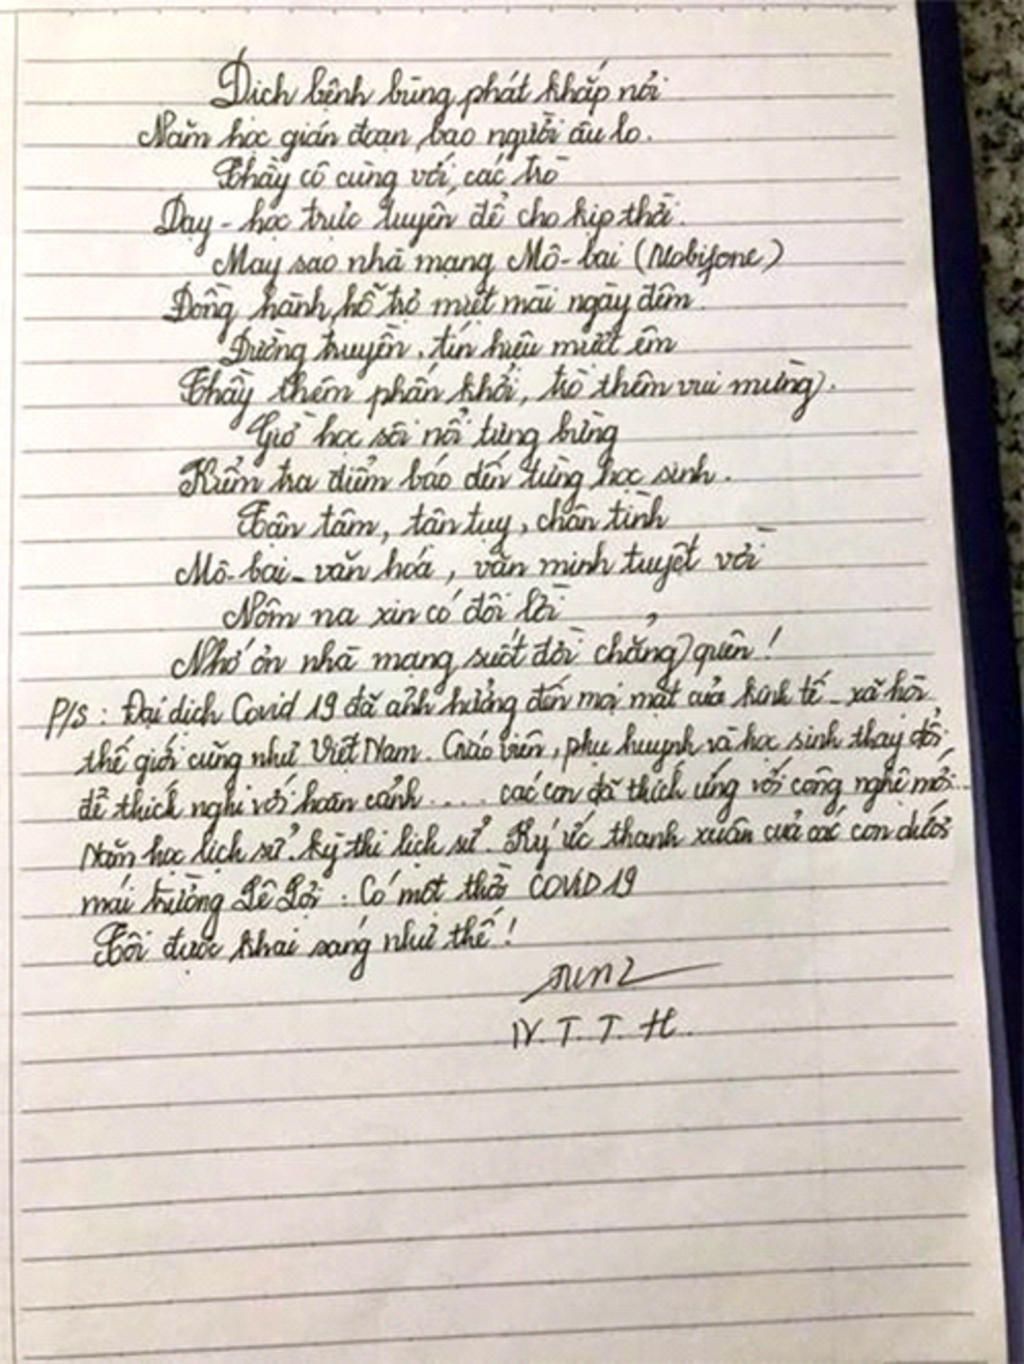 Dịch bệnh bùng phát khắp nơi
Năm học gián đoạn, bao người âu lo.
Thầy cô cùng với, các trò
Dạy - học trực tuyến để cho kịp thời.
May sao nhà mạng Mô-bai (Mobifone)
Đồng hành, hỗ trợ mướt mải ngày đêm.
Đường truyền, tín hiệu mướt êm
Thầy thêm phấn khởi, trò thêm vui mừng).
Giờ học sôi nổi tưng bừng
Kiểm tra điểm báo đến từng học sinh.
Tận tâm, tận tụy, chân tình
Mô-bai - văn hóa, văn minh tuyệt vời
Nôm na xin có đôi lời
Nhớ ơn nhà mạng suốt đời chẳng quên!
P/S: Đại dịch Covid 19 đã ảnh hưởng đến mọi mặt của kinh tế - xã hội
thế giới cũng như Việt Nam. Giáo viên, phụ huynh và học sinh thay đổi
để thích nghi với hoàn cảnh .... các con đã thích ứng với công nghệ mới...
Năm học lịch sử. kỳ thi lịch sử. Ký ức thanh xuân của các con dưới
mái trường Lê Lợi: Có một thời COVID 19
Tôi được khai sáng như thế!
N. T. T. H.